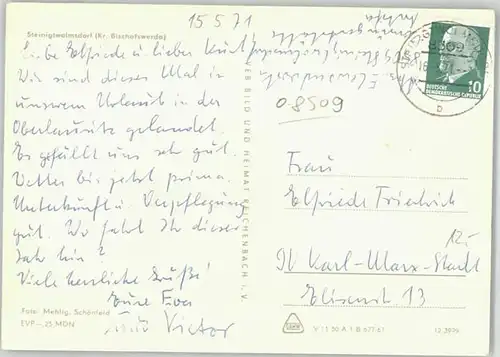 15 5 71
Steinigtwolmsdorf (Kr. Bischofswerda)
Liebe Elfriede u lieber Kurt!
Wir sind dieses Mal in
unserem Urlaub in der
Oberlausitz gelandet.
Es gefällt uns sehr gut.
Wetter bis jetzt prima.
Unterkunft u. Verpflegung
gut. Wo fahrt Ihr dieses
Jahr hin?
Viele herzliche Grüße!
Eure Eva
und Victor
Foto: Mehlig, Schönfeld
EVP –.25 MDN
VEB BILD UND HEIMAT REICHENBACH I. V.
8509
b
10
DEUTSCHE
DEMOKRATISCHE REPUBLIK
08509
Frau
Elfriede Friedrich
IV Karl-Marx-Stadt
Elisenstr. 13
12,-
V 11 50 A 1 B 677/67